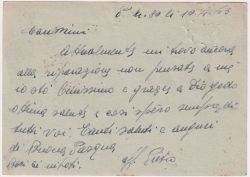 Carissimi
Attualmente mi trovo ancora
alla riparazione non pensate a me
io sto benissimo e grazie a Dio godo
ottima salute e così spero sempre di
tutti voi. Tanti saluti e auguri
di Buona Pasqua
Baci ai nipoti. aff. Pietro